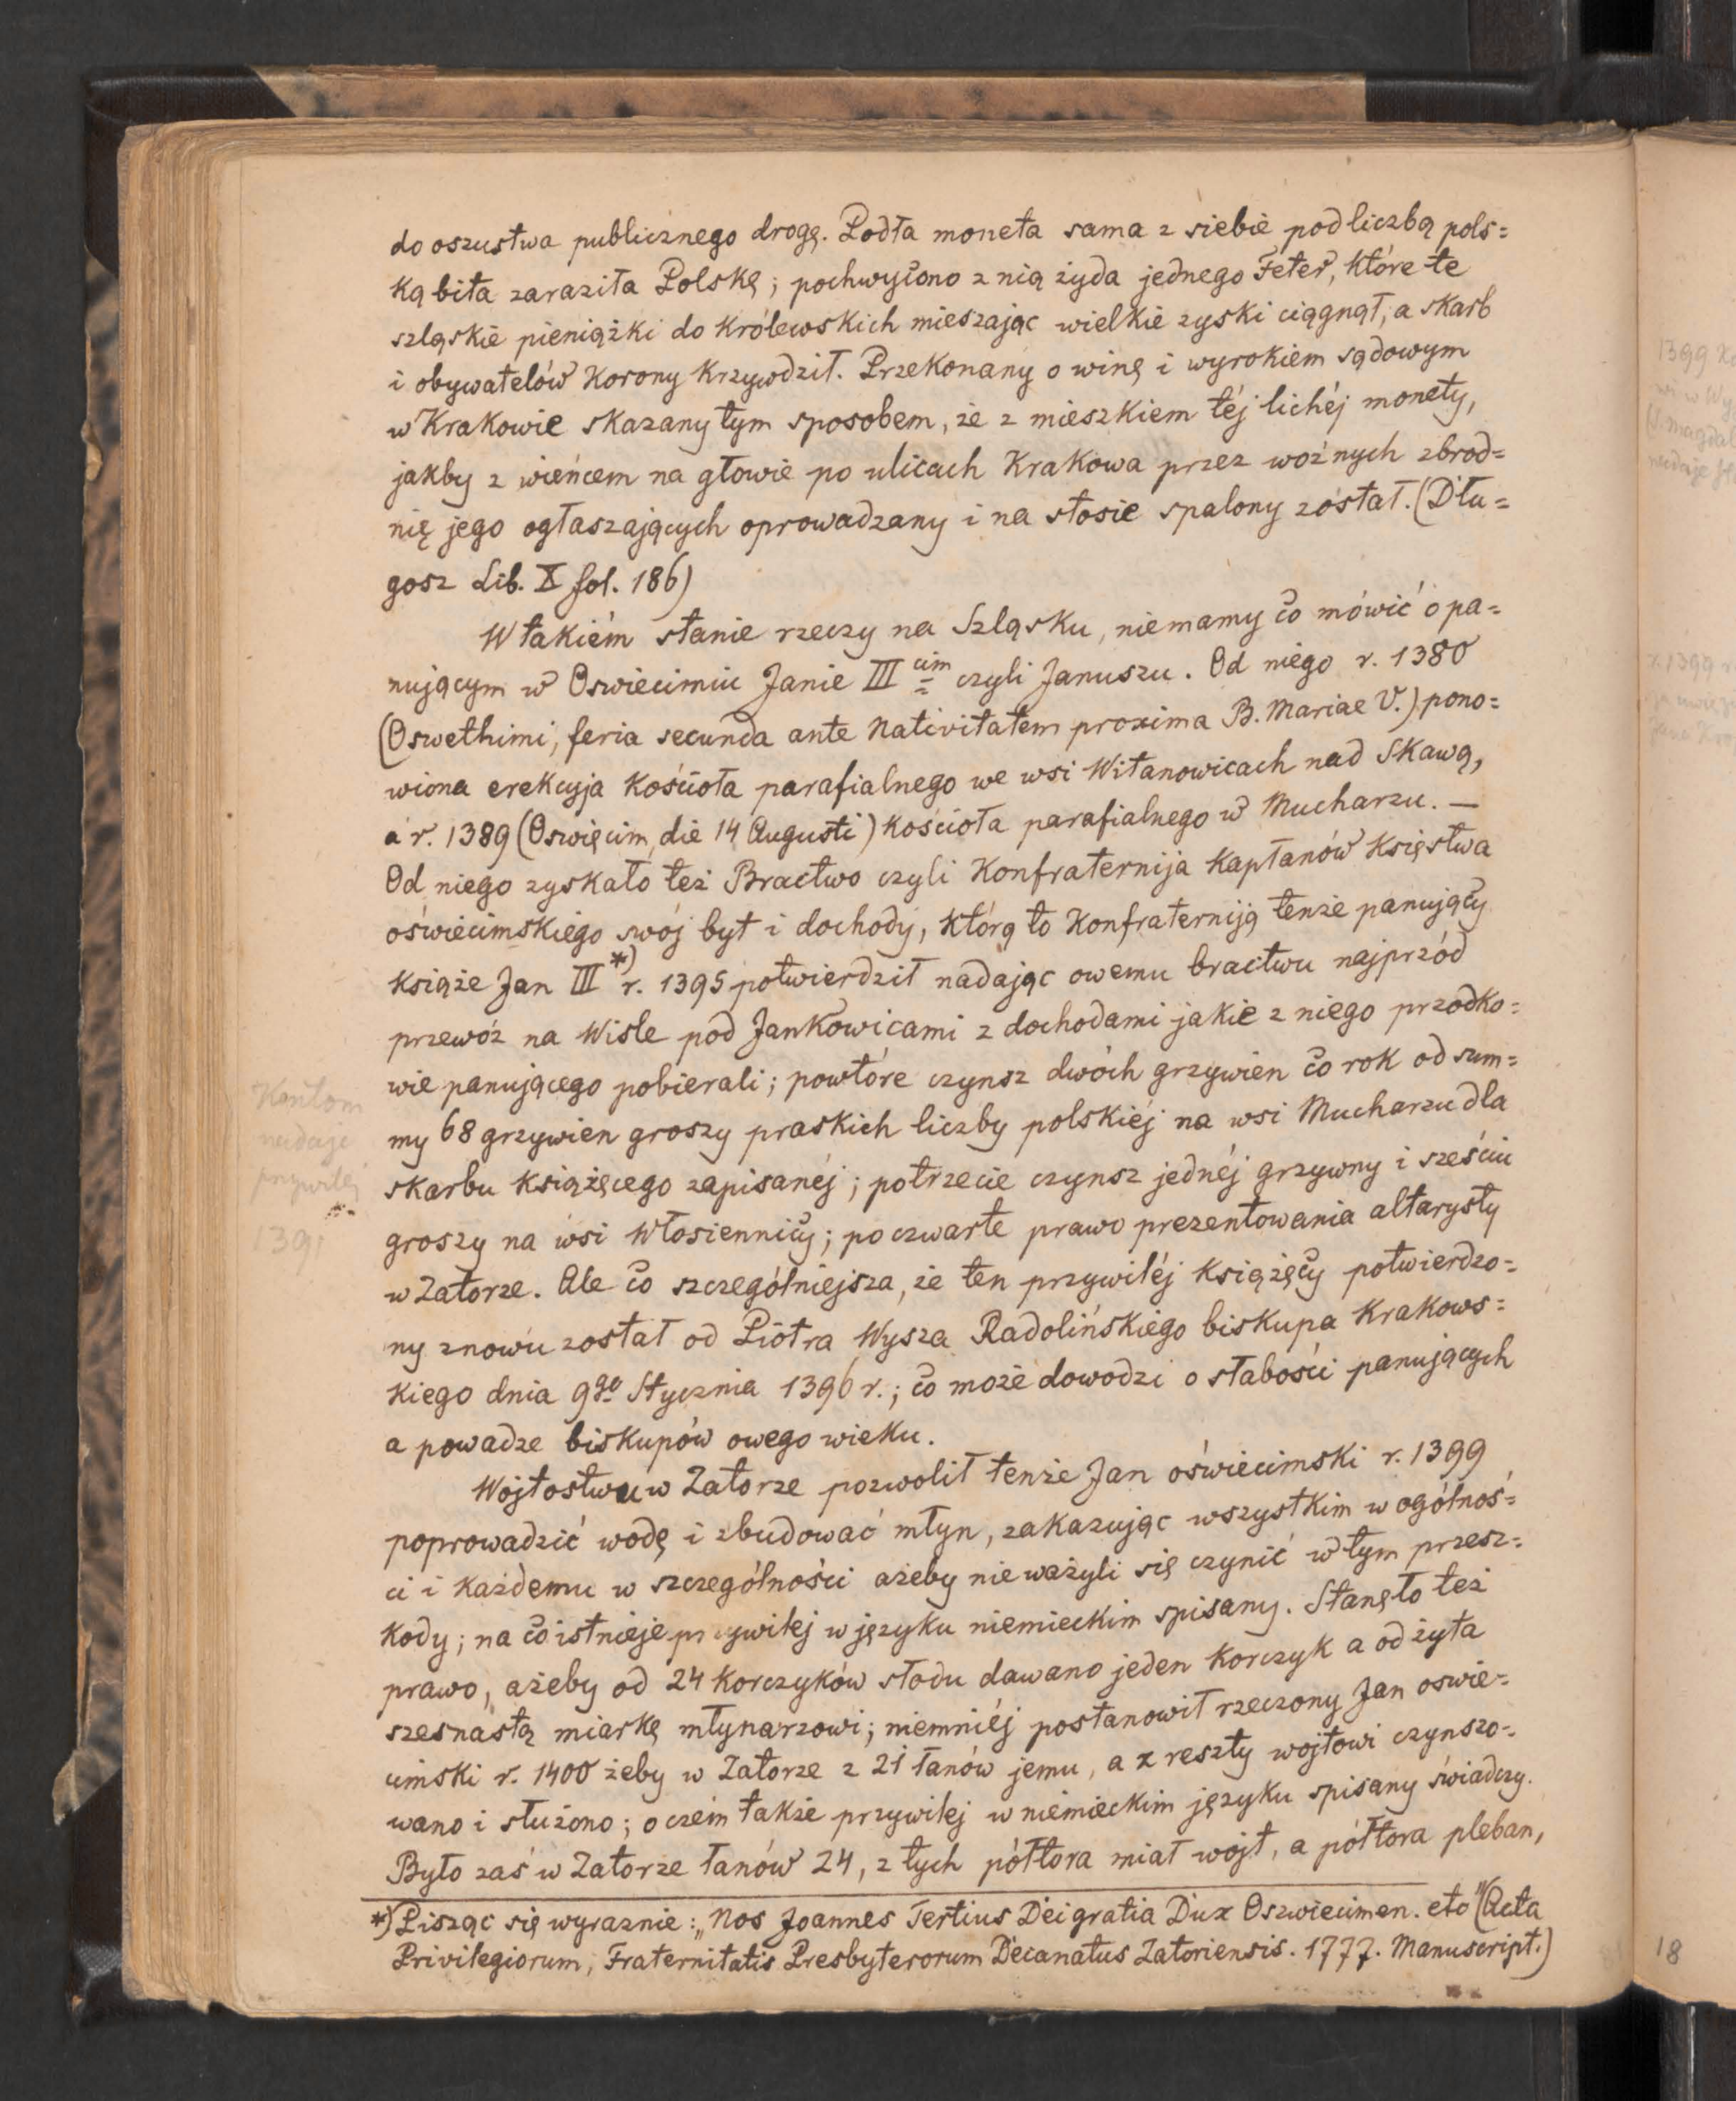 do oszustwa publicznego drogę. Podła moneta sama z siebie pod liczbą pols=
ką bita zaraziła Polskę; pochwycono z nią żyda jednego Feter, które te
szląskie pieniążki do królewskich mieszając wielkie zyski ciągnął, a skarb
i obywatelów Korony krzywdził. Przekonany o winę i wyrokiem sądowym
w Krakowie skazany tym sposobem, że z mieszkiem téj lichéj monety,
jakby z wieńcem na głowie po ulicach Krakowa przez woźnych zbrod=
nię jego ogłaszających oprowadzany i na stosie spalony został. (Dłu=
gosz Lib. X fol. 186)
W takiém stanie rzeczy na Szląsku, niemamy co mówić o pa=
nującym w Oswiecimiu Janie III cim czyli Januszu. Od niego r. 1380
(Oswethimi, feria secunda ante Nativitatem proxima B. Mariae V.) pono=
wiona erekcyja kościoła parafialnego we wsi Witanowicach nad Skawą,
a r. 1389 (Oswięcim, die 14 Augusti) kościoła parafialnego w Mucharzu. —
Od niego zyskało też Bractwo czyli Konfraternija kapłanów Księstwa
oświecimskiego swój byt i dochody, którą to Konfraterniją tenże panujący
książe Jan III *) r. 1395 potwierdził nadając owemu bractwu najprzód
przewóz na Wiśle pod Jankowicami z dochodami jakie z niego przodko=
wie panującego pobierali; powtóre czynsz dwóch grzywien co rok od sum=
my 68 grzywien groszy praskich liczby polskiéj na wsi Mucharzu dla
skarbu książęcego zapisanéj; potrzecie czynsz jednéj grzywny i sześciu
groszy na wsi Włosiennicy; po czwarte prawo prezentowania altarysty
w Zatorze. Ale co szczególniejsza, że ten przywiléj książęcy potwierdzo=
ny znowu został od Piotra Wysza Radolińskiego biskupa krakows=
kiego dnia 9go Stycznia 1396 r.; co może dowodzi o słabości panujących
a powadze biskupów owego wieku.
Wojtostwu w Zatorze pozwolił tenże Jan oświecimski r. 1399
poprowadzić wodę i zbudować młyn, zakazując wszystkim w ogólnoś=
ci i każdemu w szczególności ażeby nie ważyli się czynić w tym przesz=
kody; na co istnieje przywilej w języku niemieckim spisany. Stanęło też
prawo, ażeby od 24 korczyków słodu dawano jeden korczyk a od żyta
szesnastą miarkę młynarzowi; niemniéj postanowił rzeczony Jan oswie=
cimski r. 1400 żeby w Zatorze z 21 łanów jemu, a z reszty wojtowi czynszo=
wano i służono; o czém także przywilej w niemieckim języku spisany świadczy.
Było zaś w Zatorze łanów 24, z tych półtora miał wojt, a półtora pleban,
*) Pisząc się wyraznie: „Nos Joannes Tertius Dei gratia Dux Oszwiecimen. etc" (Acta
Privilegiorum, Fraternitatis Presbyterorum Decanatus Zatoriensis. 1777. Manuscript.)
nadaje
przywilej
18